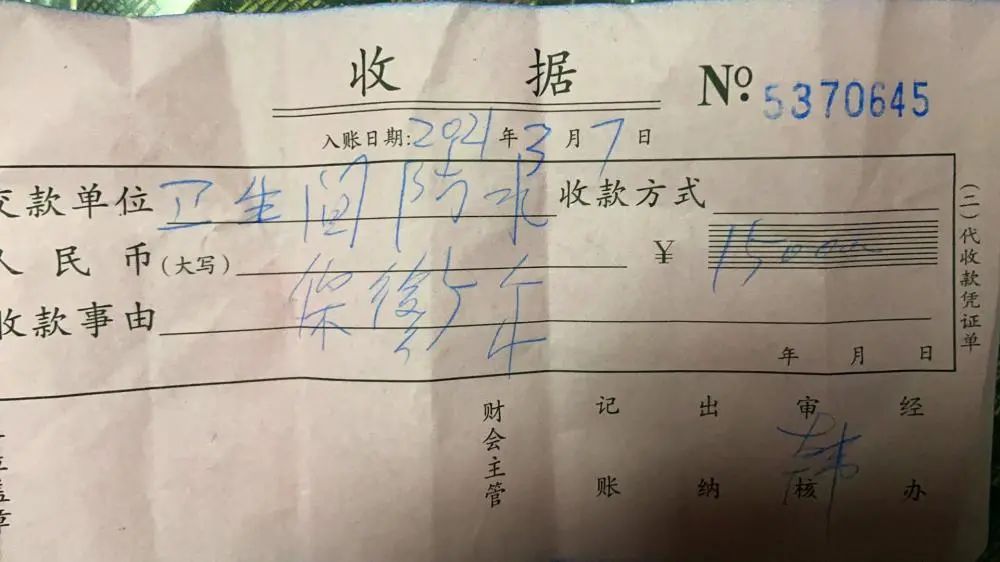 收 据 Nº. 5370645
入账日期:2021年3月7日
交款单位 卫生间防水 收款方式
人民币(大写) ¥
收款事由 保修5年
年 月 日
(二)代收款凭证单
财会主管 记账 出纳 审核 经办